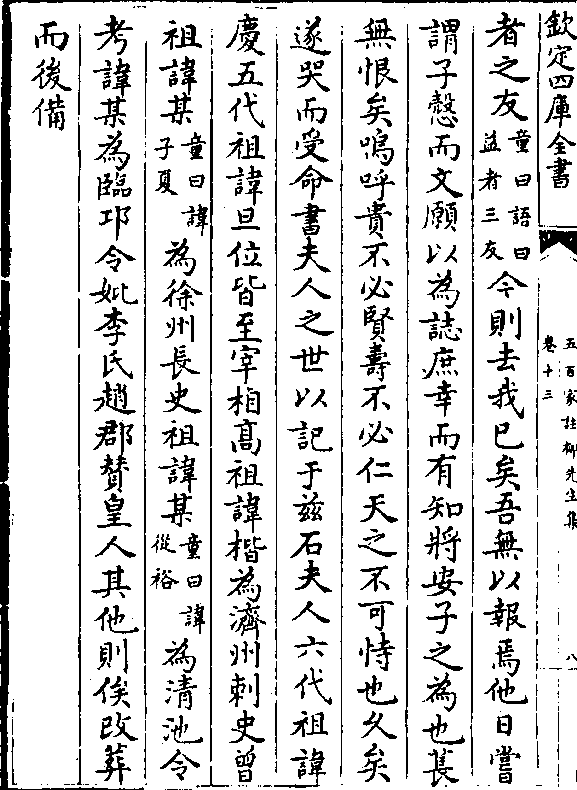 欽定四庫全書
五百家註柳先生集
卷十三
八
者之友童曰語曰益者三友今則去我已矣吾無以報焉他日嘗
謂子慤而文願以為誌庶幸而有知將安子之為也雋
無恨矣嗚呼貴不必賢壽不必仁天之不可恃也久矣
遂哭而受命書夫人之世以記于兹石夫人六代祖諱
慶五代祖諱旦位皆至宰相高祖諱楷為濟州刺史曾
祖諱某童曰諱子夏為徐州長史祖諱某童曰諱從裕為清池令
考諱某為臨邛令妣李氏趙郡贊皇人其他則俟改葬
而後備